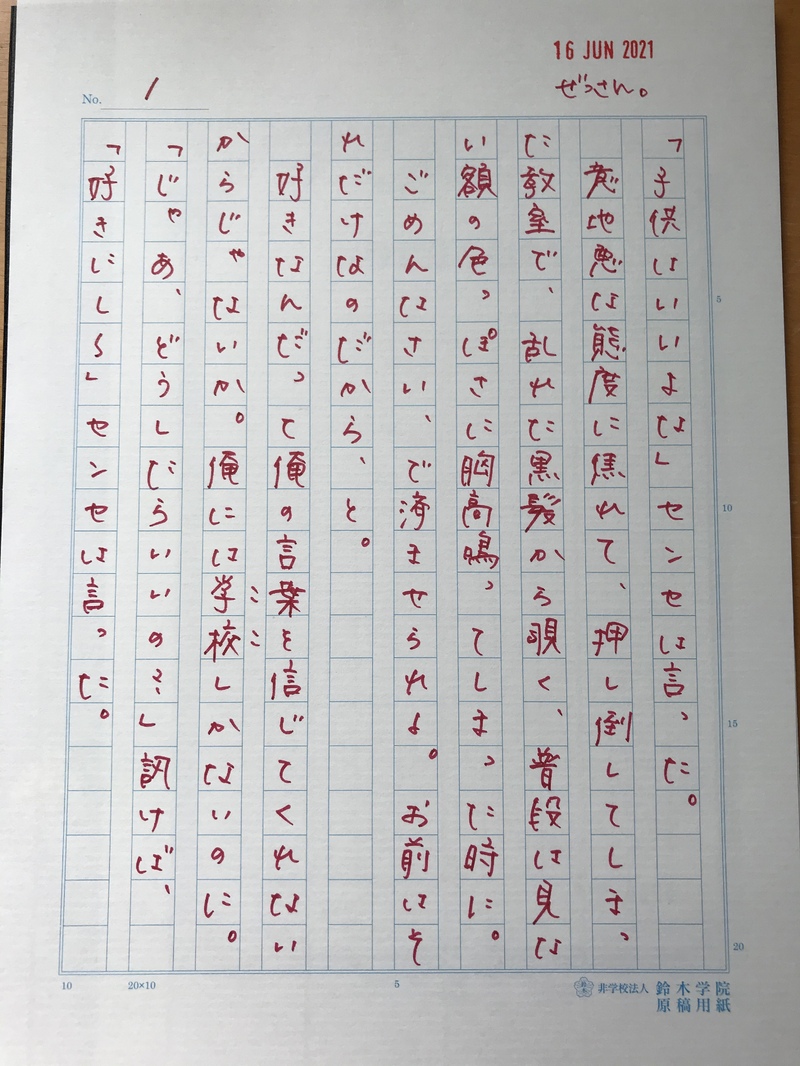 16 JUN 2021
ぜっさん。
No. 1
「子供はいいよな」センセは言った。
意地悪な態度に焦れて、押し倒してしまっ
た教室で、乱れた黒髪から覗く、普段は見な
い額の色っぽさに胸高鳴ってしまった時に。
ごめんなさい、で済ませられよ。お前はそ
れだけなのだから、と。
好きなんだって俺の言葉を信じてくれない
からじゃないか。俺には学校しかないのに。
「じゃあ、どうしたらいいのさ」訊けば、
「好きにしろ」センセは言った。
5
10
15
20
10
20×10
5
非学校法人 鈴木学院
原稿用紙